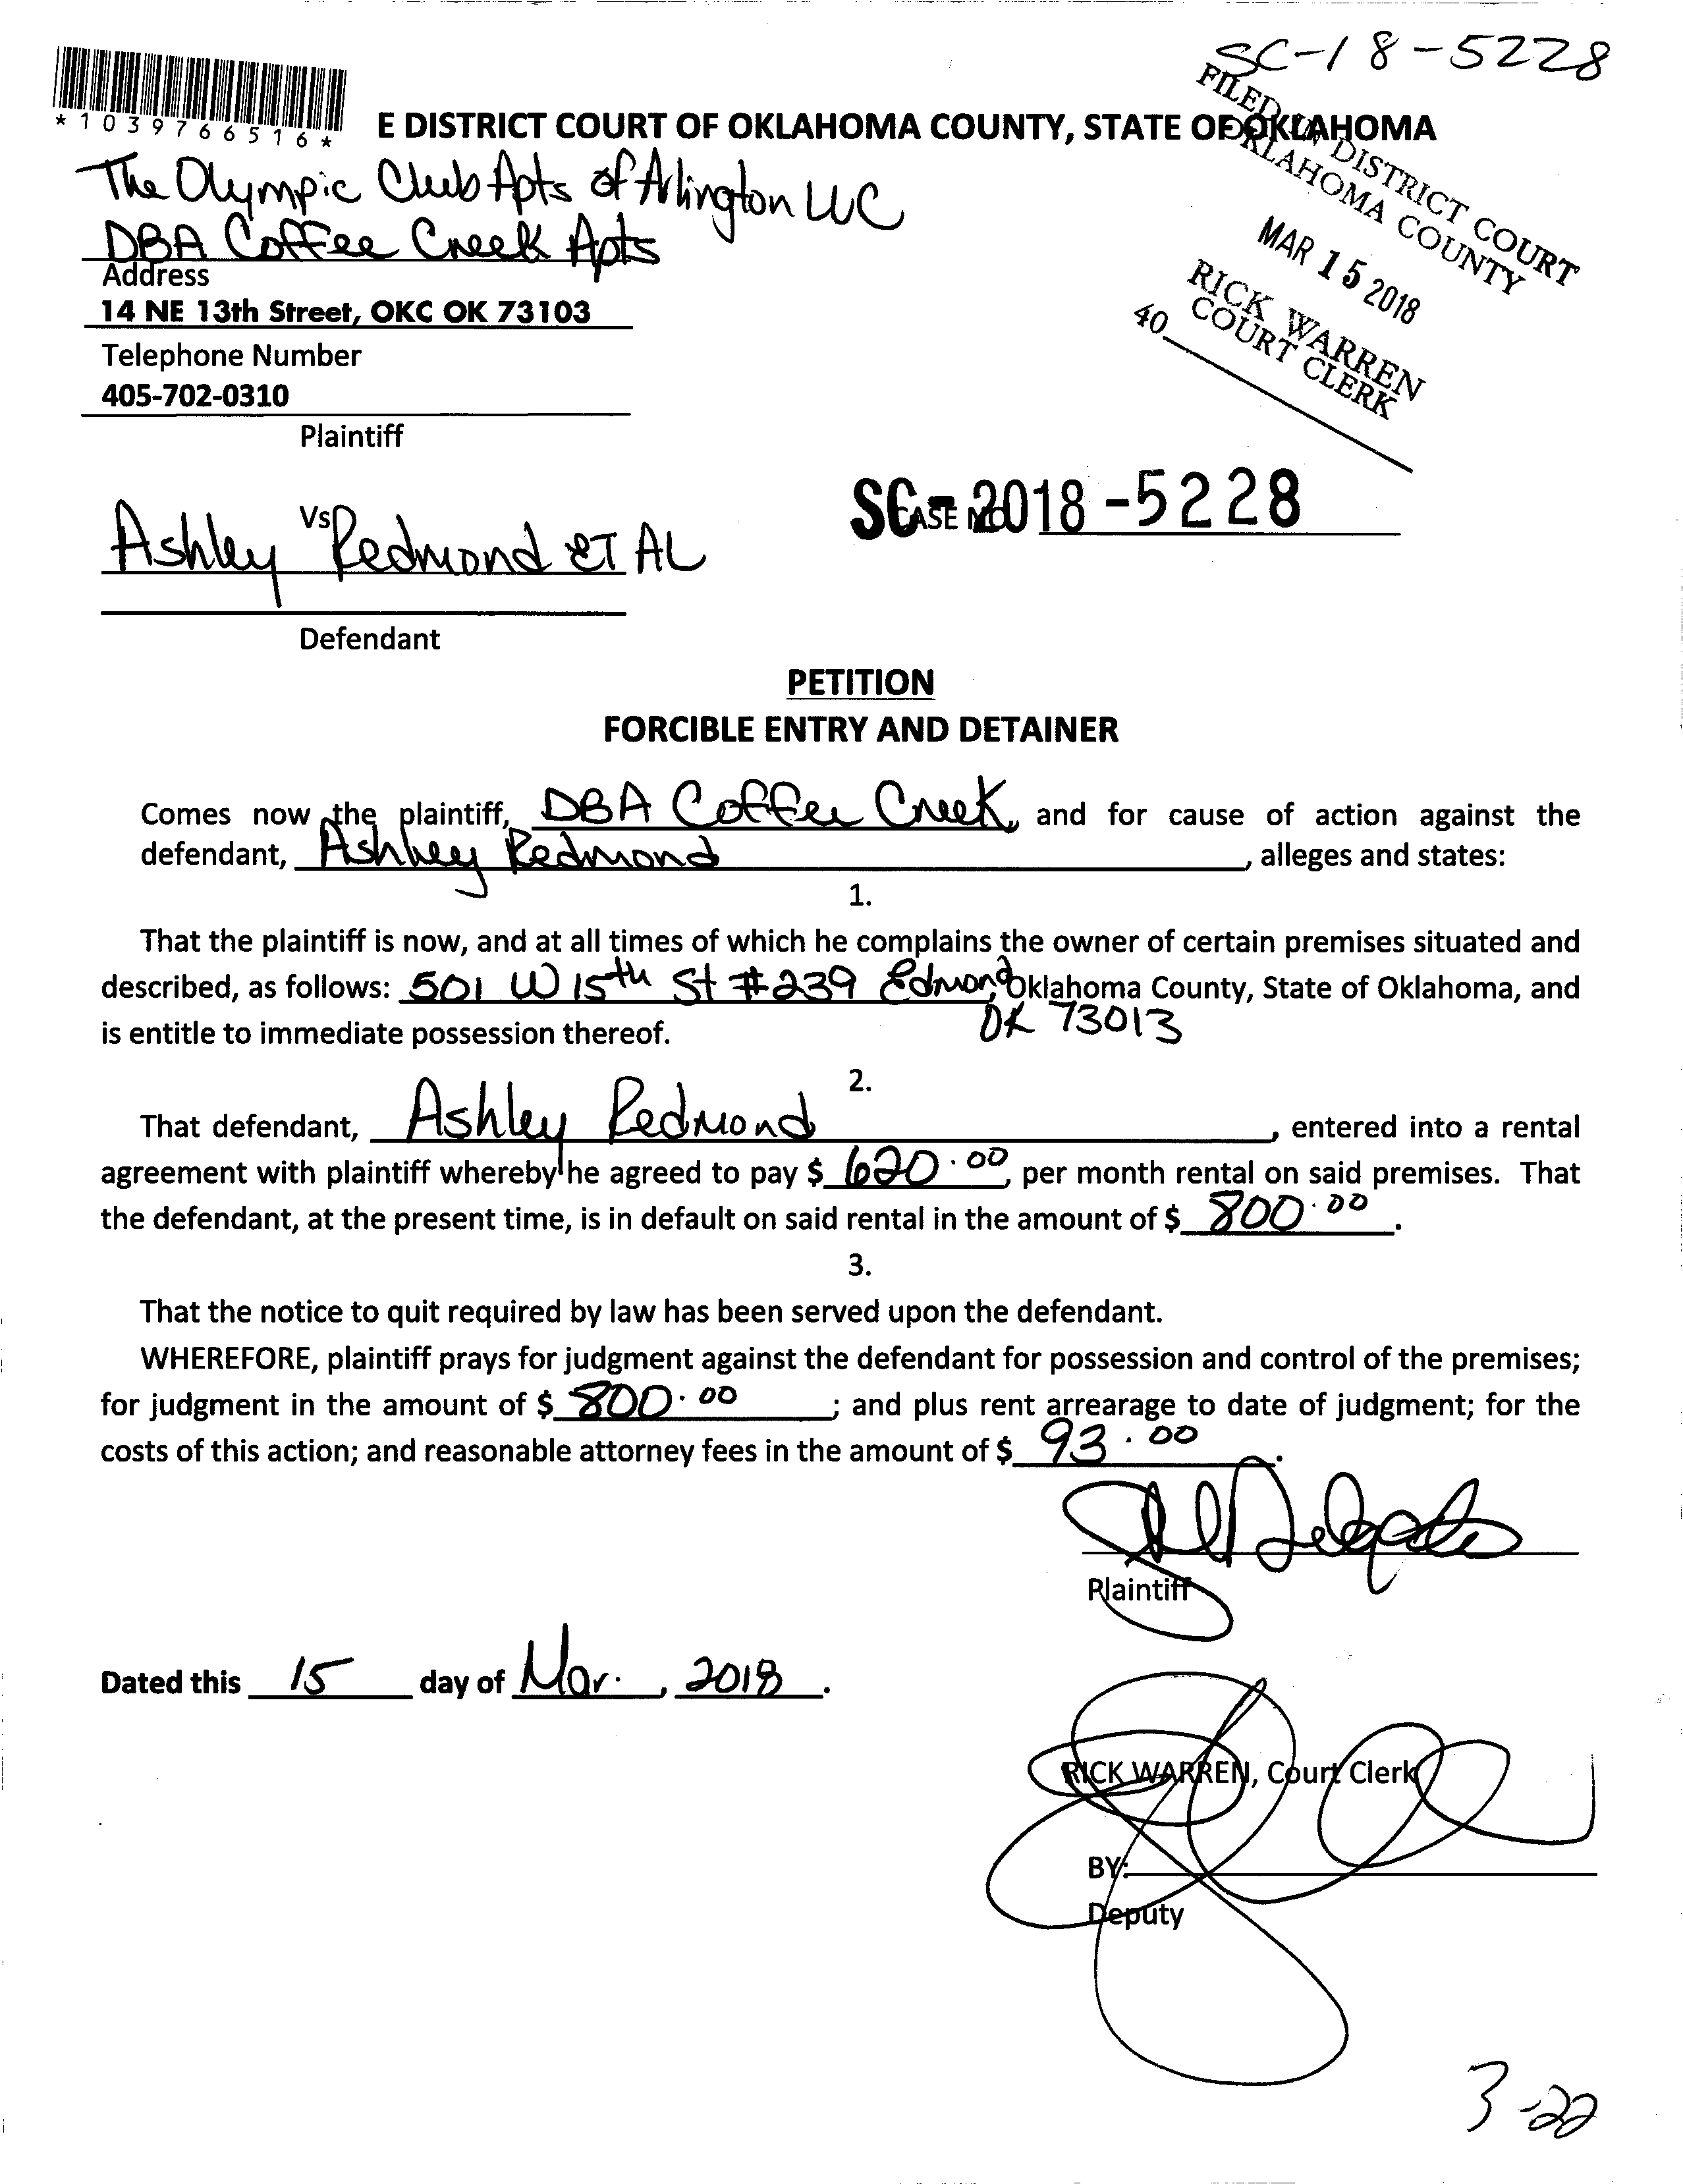 SC-18-5228
*1039766516*
E DISTRICT COURT OF OKLAHOMA COUNTY, STATE OF OKLAHOMA
FILED IN DISTRICT COURT
OKLAHOMA COUNTY
MAR 15 2018
RICK WARREN
COURT CLERK
40
The Olympic Club Apts of Arlington LLC
DBA Coffee Creek Apts
Address
14 NE 13th Street, OKC OK 73103
Telephone Number
405-702-0310
Plaintiff
Vs
SC-2018-5228
CASE NO.
Ashley Redmond ET AL
Defendant
PETITION
FORCIBLE ENTRY AND DETAINER
Comes now the plaintiff, DBA Coffee Creek, and for cause of action against the
defendant, Ashley Redmond, alleges and states:
1.
That the plaintiff is now, and at all times of which he complains the owner of certain premises situated and
described, as follows: 501 W 15th St #239 Edmond, Oklahoma County, State of Oklahoma, and
OK 73013
is entitle to immediate possession thereof.
2.
That defendant, Ashley Redmond, entered into a rental
agreement with plaintiff whereby he agreed to pay $ 620.00, per month rental on said premises. That
the defendant, at the present time, is in default on said rental in the amount of $ 800.00.
3.
That the notice to quit required by law has been served upon the defendant.
WHEREFORE, plaintiff prays for judgment against the defendant for possession and control of the premises;
for judgment in the amount of $ 800.00; and plus rent arrearage to date of judgment; for the
costs of this action; and reasonable attorney fees in the amount of $ 93.00.
Plaintiff
Dated this 15 day of Mar., 2018.
RICK WARREN, Court Clerk
BY:
Deputy
3-22